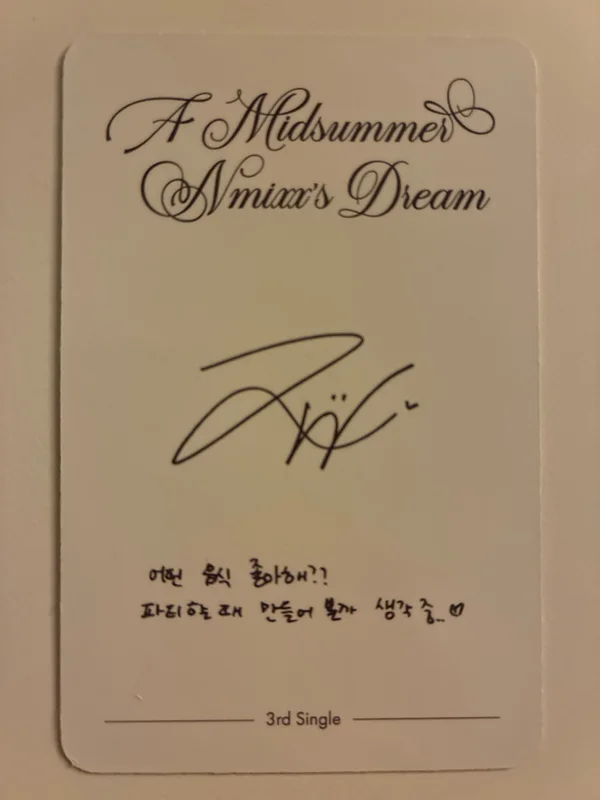 A Midsummer
Nmixx's Dream
어떤 음식 좋아해??
파티할 때 만들어 볼까 생각 중..♡
3rd Single